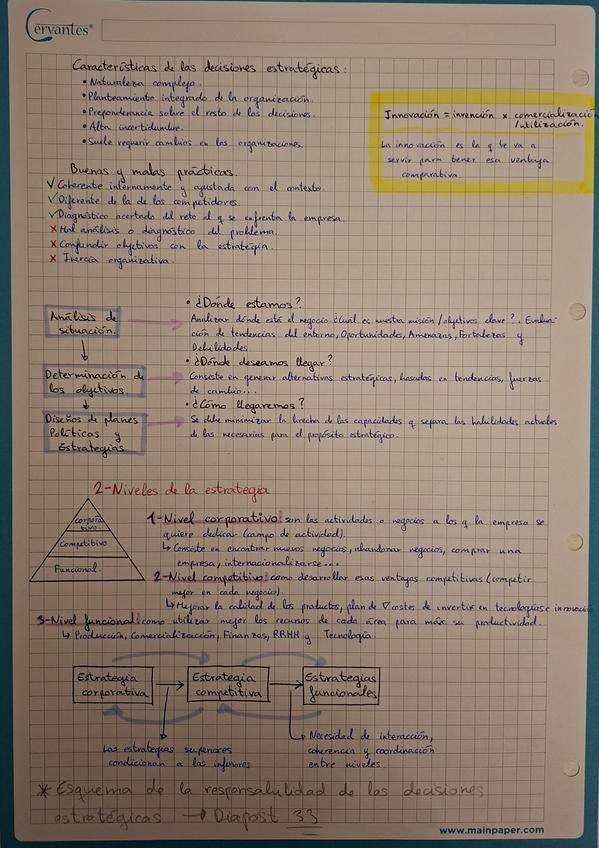 Cervantes®
Características de las decisiones estratégicas:
• Naturaleza compleja.
• Planteamiento integrado de la organización.
• Preponderancia sobre el resto de las decisiones.
• Alta incertidumbre.
• Suele requerir cambios en las organizaciones.
Innovación = invención x comercialización
/utilización.
La innovación es la q te va a
servir para tener esa ventaja
comparativa.
Buenas y malas prácticas.
✓ Coherente internamente y ajustada con el contexto.
✓ Diferente de la de los competidores.
✓ Diagnóstico acertado del reto al q se enfrenta la empresa.
x Mal análisis o diagnóstico del problema.
x Confundir objetivos con la estrategia.
x Inercia organizativa.
Análisis de
situación.
• ¿Dónde estamos?
Analizar dónde está el negocio ¿Cuál es nuestra misión/objetivos clave?. Evalua-
ción de tendencias del entorno, Oportunidades, Amenazas, Fortalezas y
Debilidades
Determinación de
los objetivos.
• ¿Dónde deseamos llegar?
Consiste en generar alternativas estratégicas, basadas en tendencias, fuerzas
de cambio...
Diseños de planes
Políticas y
Estrategias
• ¿Cómo llegaremos?
Se debe minimizar la brecha de las capacidades q separa las habilidades actuales
de las necesarias para el propósito estratégico.
2-Niveles de la estrategia
corpora
tivo.
Competitivo
Funcional.
1-Nivel corporativo: son las actividades o negocios a los q la empresa se
quiere dedicar (campo de actividad).
↳ Consiste en encontrar nuevos negocios, abandonar negocios, comprar una
empresa, internacionalizarse...
2-Nivel competitivo: como desarrollar esas ventajas competitivas (competir
mejor en cada negocio).
↳ Mejorar la calidad de los productos, plan de ∇ costes de invertir en tecnologías e innovación
3-Nivel funcional: como utilizar mejor los recursos de cada área para máx su productividad.
↳ Producción, Comercialización, Finanzas, RRHH y Tecnología.
Estrategia
corporativa
Estrategia
competitiva
Estrategias
funcionales
Las estrategias superiores
condicionan a las inferiores
Necesidad de interacción,
coherencia y coordinación
entre niveles
* Esquema de la responsabilidad de las decisiones
estratégicas → Diapost 33
www.mainpaper.com